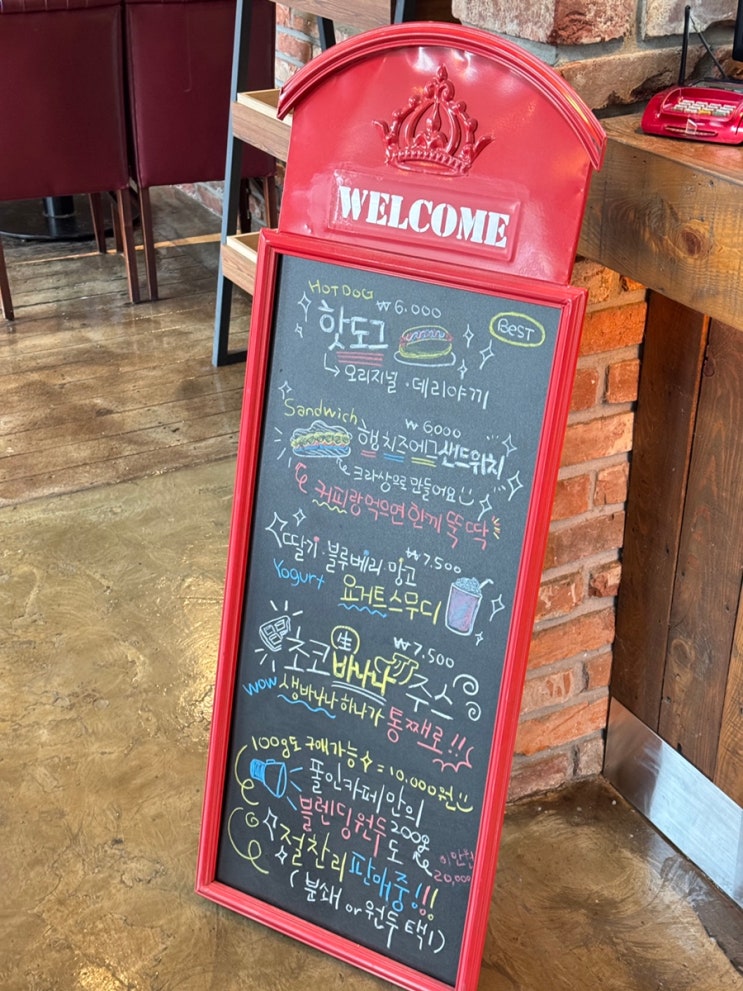 WELCOME
HOT DOG ₩6.000
핫도그 BEST
오리지널 · 데리야끼
Sandwich ₩6000
햄치즈에그샌드위치
크라상으로 만들어요
커피랑먹으면한끼 뚝딱
딸기·블루베리·망고 ₩7.500
Yogurt 요거트스무디
生 ₩7.500
초코바나나주스
WOW 생바나나하나가 통째로!!
100g도 구매가능 = 10.000원
폴인카페만의
블렌딩원두200g도
절찬리판매중!!! 이만원 20,000
(분쇄 or 원두 택1)